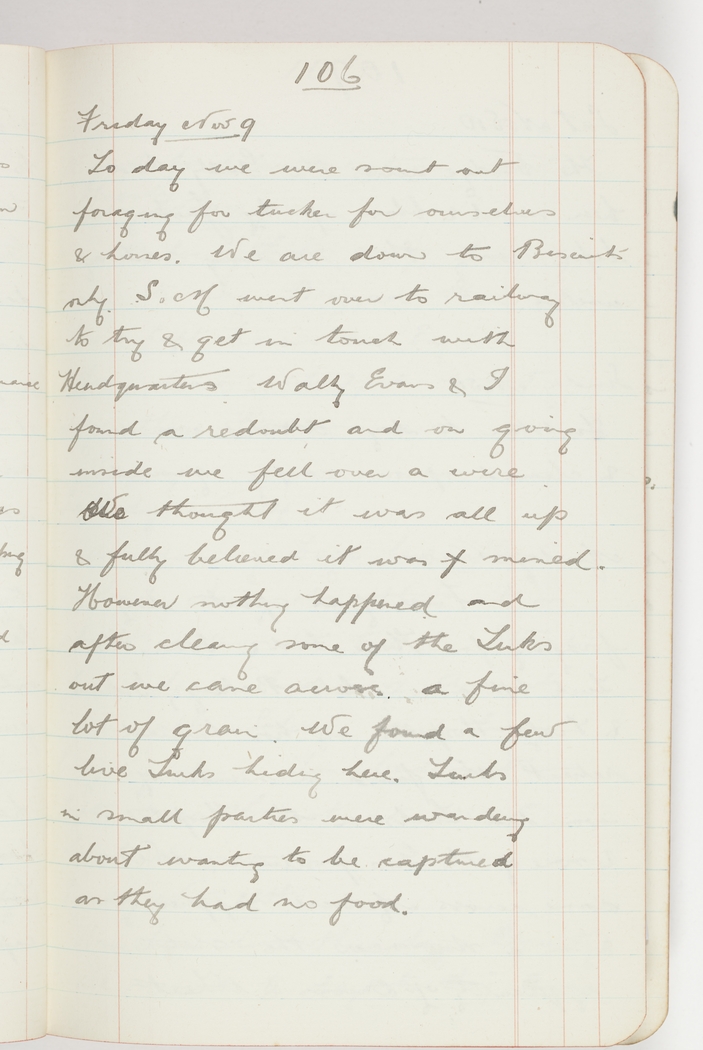 106
Friday Nov 9
To day we were sent out
foraging for tucker for ourselves
& horses. We are down to Biscuits
only. S.M went over to railway
to try & get in touch with
Headquarters Wally Evans & I
found a redoubt and on going
inside we fell over a wire
We thought it was all up
& fully believed it was mined.
However nothing happened and
after clearing some of the Turks
out we came across a fine
lot of grain. We found a few
live Turks hiding here. Turks
in small parties were wandering
about wanting to be captured
as they had no food.